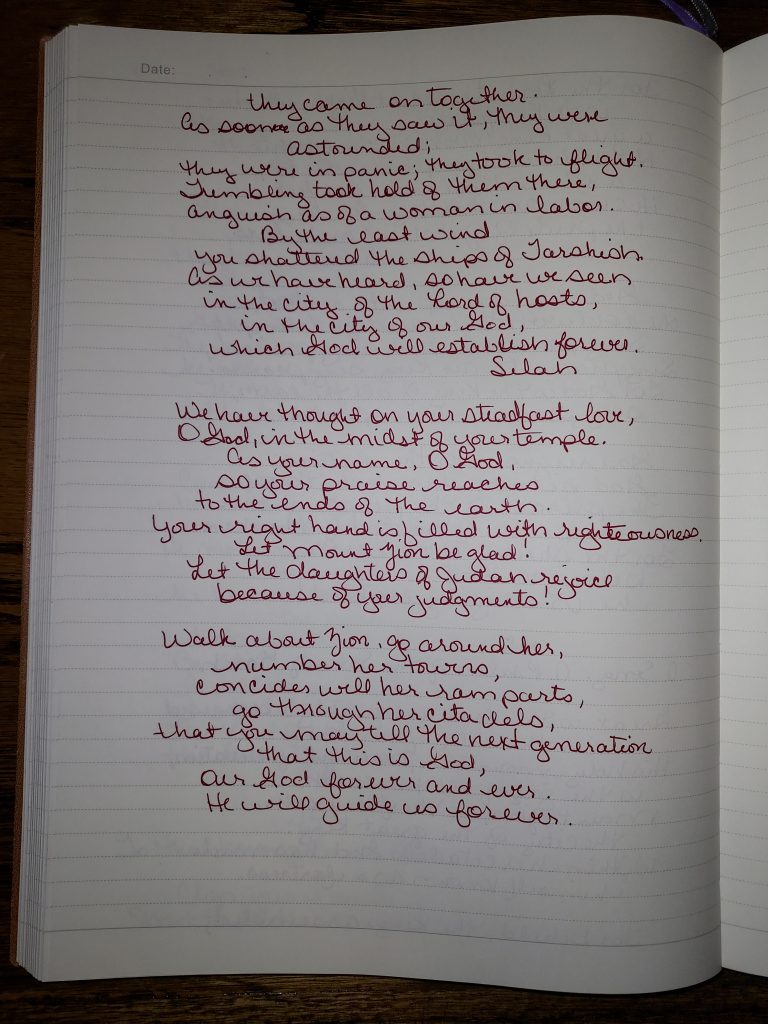 Date:
they came on together.
As soon as they saw it, they were
astounded;
they were in panic; they took to flight.
Trembling took hold of them there,
anguish as of a woman in labor.
By the east wind
you shattered the ships of Tarshish.
As we have heard, so have we seen
in the city of the Lord of hosts,
in the city of our God,
which God will establish forever.
Selah
We have thought on your steadfast love,
O God, in the midst of your temple.
As your name, O God,
so your praise reaches
to the ends of the earth.
Your right hand is filled with righteousness.
Let Mount Zion be glad!
Let the daughters of Judah rejoice
because of your judgments!
Walk about Zion, go around her,
number her towers,
concider well her ramparts,
go through her citadels,
that you may tell the next generation
that this is God,
our God forever and ever.
He will guide us forever.